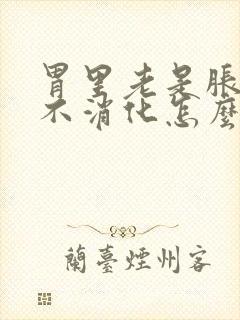 胃里老是脹
不消化怎麼
蘭臺煙州客